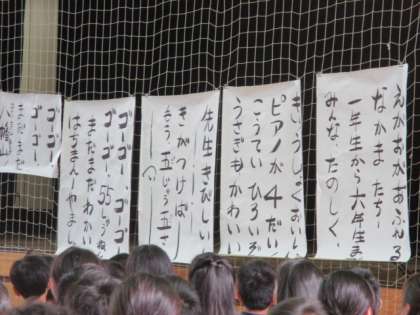 えがおがあふれる
なかまたち
一年生から六年生ま
みんな、たのしく、
きゅうしょくおいし
ピアノが４だい
こうていひろい
うさぎもかわいい
先生きびしい
きがつけば
もう五じゅう五さ
ゴーゴー、ゴーゴー
ゴーゴー、55しゅうねん
まだまだわかい
はちまんーやまし
ゴーゴー
ゴーゴー
まだまだ
八幡